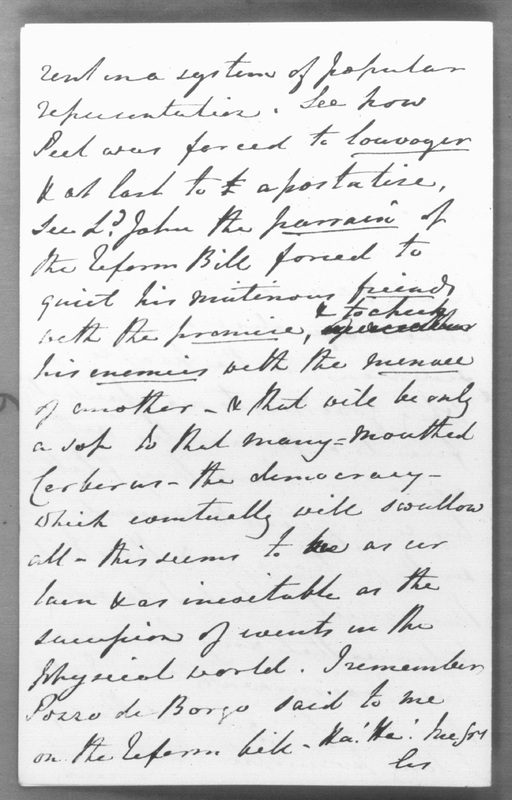 rent in a system of popular
representation. See how
Peel was forced to louvoyer
& at last to apostatise,
See Ld. John the parrain of
the Reform Bill forced to
quiet his mutinous friends
with the promise, & to check
his enemies with the menace
of another - & that will be only
a sop to that many=mouthed
Cerberus - the democracy -
which eventually will swallow
all - this seems to me as cer
tain & as inevitable as the
succession of events in the
physical world. I remember
Pozzo de Borgo said to me
on the Reform bill - Ha! Ha!